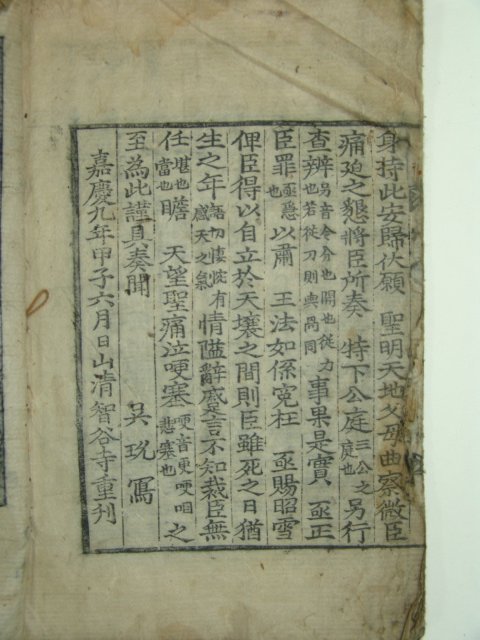 身持此安歸伏願 聖明天地父母曲察微臣
痛迫之懇將臣所奏 特下公庭三公之庭也另行
查辨另音令分也開也從力也若從刀則與咼同事果是實 亟正
臣罪亟急也以肅 王法如係冤枉 亟賜昭雪
俾臣得以自立於天壤之間則臣雖死之日猶
生之年語切悽惋有感天之氣情隘辭蹙言不知裁臣無
任堪也當也瞻 天望聖痛泣哽塞哽音更哽咽悲塞也之
至為此謹具奏聞
吳玧寫
嘉慶九年甲子六月日山清智谷寺重刊